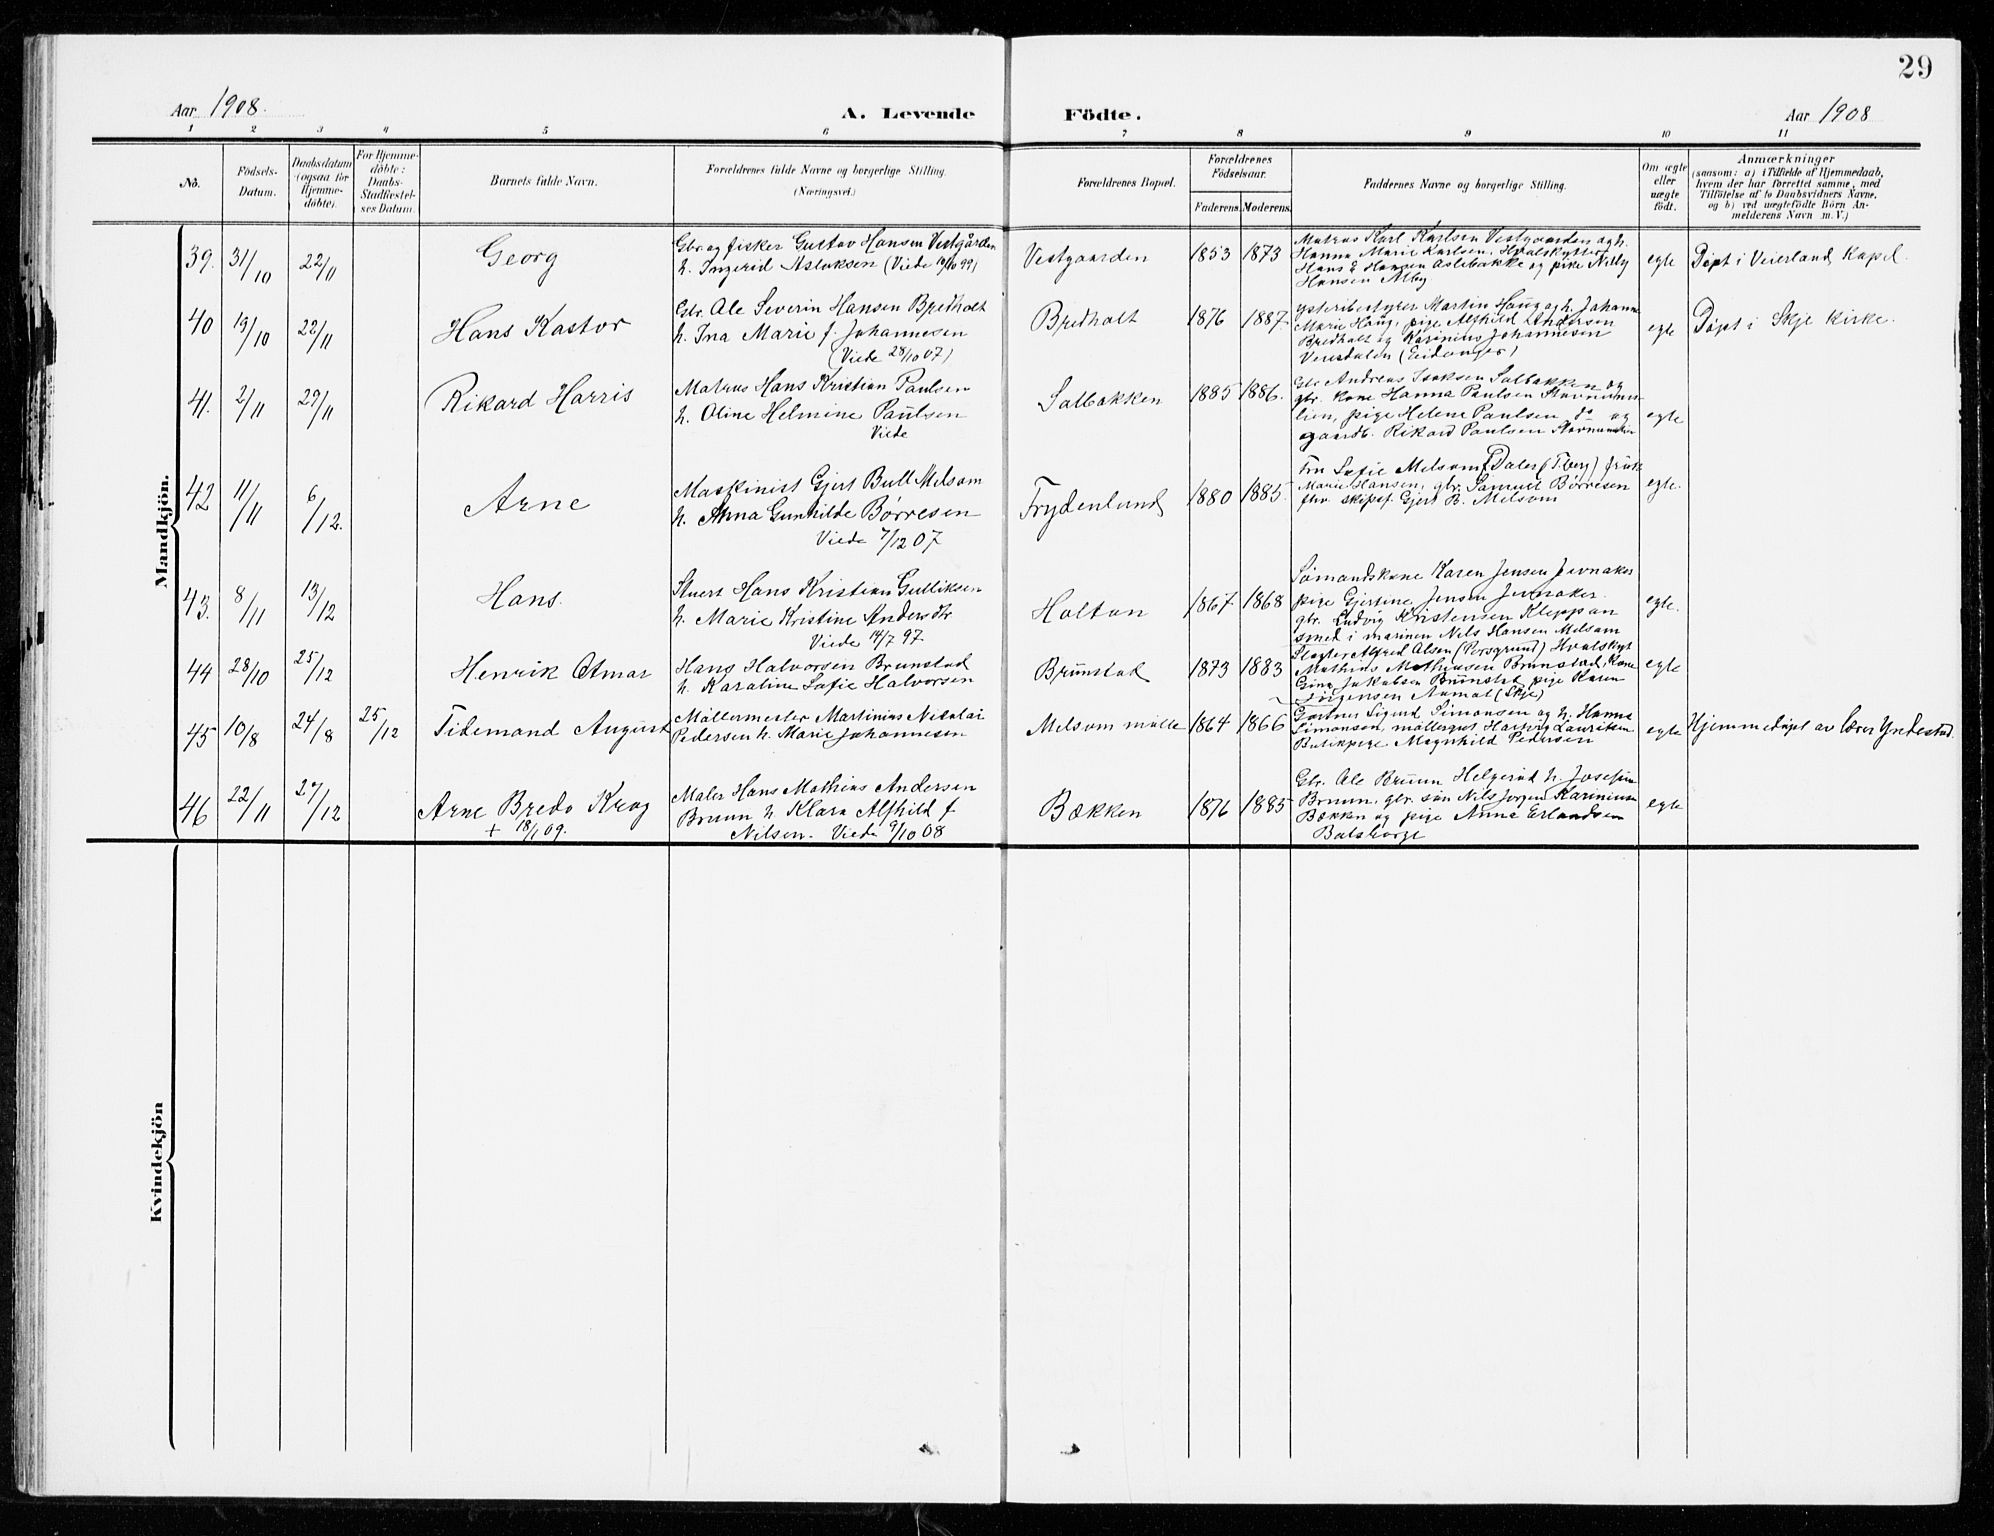 29
Aar 1908.
A. Levende Födte.
Aar 1908
1 2 3 4 5 6 7 8 9 10 11
No.
Födsels-
Datum.
Daabsdatum
(ogsaa for
Hjemme-
döbte).
For Hjemme-
döbte:
Daabs-
Stadfæstel-
ses Datum.
Barnets fulde Navn.
Forældrenes fulde Navne og borgerlige Stilling.
(Næringsvei.)
Forældrenes Bopæl.
Forældrenes
Födselsaar.
Faderens. Moderens.
Faddernes Navne og borgerlige Stilling.
Om ægte
eller
uægte
födt.
Anmærkninger
(saasom: a) i Tilfælde af Hjemmedaab,
hvem der har forrettet samme, med
Tilföielse af to Daabsvidners Navne,
og b) ved uægtefödte Börn An-
melderens Navn m. V.)
Mandkjön.
39. 31/10 22/11 Georg
Gbr. og fisker Gustav Hansen Vestgården
h. Ingerid Aslaksen (Viede 19/10 99)
Vestgaarden 1853 1873
Matros Karl Karlsen Vestgaarden og h.
Hanna Marie Karlsen, Hvalskytter
Hans E Hansen Aslebakke og pike Nilly
Hansen Alby
egte Døpt i Veierland Kapel.
40 19/10 22/11 Hans Kastor
Gbr. Ole Severin Hansen Bredholt
h. Ina Marie f. Johannesen
(Viede 28/10 07)
Bredholt 1876 1887.
Ysteribestyrer Martin Haug og h. Johanne
Marie Haug, pige Alfhild Andersen
Bredholt og Karinius Johannesen
(Eidanger)
egte Døpt i Skje Kirke.
41. 2/11 29/11 Rikard Harris
Matros Hans Kristian Paulsen
h. Oline Helmine Paulsen
Viede
Solbakken 1885 1886.
Gbr Andreas Isaksen Solbakken og
gbr. kone Hanna Paulsen
lien, pige Helene Paulsen do og
gaardb. Rikard Paulsen
egte
42 11/11 6/12. Arne
Maskinist Gjert Bull Melsom
h. Anna Gunhilde Børresen
Viede 7/12 07
Frydenlund 1880 1885.
Fru Sofie Melsom, Daler (T.berg) frøk
Marie Hansen, gbr. Samuel Børresen
fhv. skipsf. Gjert B. Melsom
egte.
43. 8/11 13/12 Hans.
Stuert Hans Kristian Gulliksen
h. Marie Kristine Andersdtr.
Viede 14/7 97.
Holtan 1867. 1868
Sømandskone Karen Jensen Jevnaker
pige Gjertine Jensen Jevnaker.
gbr. Ludvig Kristensen Kleppan
smed i marinen Nils Hansen Melsom
egte.
44 28/10 25/12 Henrik Otmar
Hans Halvorsen Brunstad
h. Karoline Sofie Halvorsen
Brunstad 1873 1883
Slagter Alfred Olsen (Porsgrund) Hvalskyt
Mathias Mathiasen Brunstad, Kone
Gina Jakobsen Brunstad pige Karen
Jørgensen Aumot (Skje)
egte
45 10/8 24/8 25/12 Tidemand August
Møllermester Martinius Nikolai
Pedersen h. Marie Johannesen
Melsom mølle 1864 1866
Gartner Sigurd Simonsen og h. Hanna
Simonsen, møllergut Hartvig Lauritsen
Butikpige Magnhild Pedersen
egte Hjemmedøpt av lærer Yndestad.
46 22/11 27/12 Arne Bredo Krog
+ 18/1 09.
Maler Hans Mathias Andersen
Bruun h Klara Alfhild f
Nilsen. Viede 9/10 08
Bækken 1876 1885
Gbr. Ole Bruun Helgerød h. Josefine
Bruun, gbr. søn Nils Jørgen Kariniusen
Bækken og pige Anna Erlandsen
Balsborge
egte
Kvindekjön